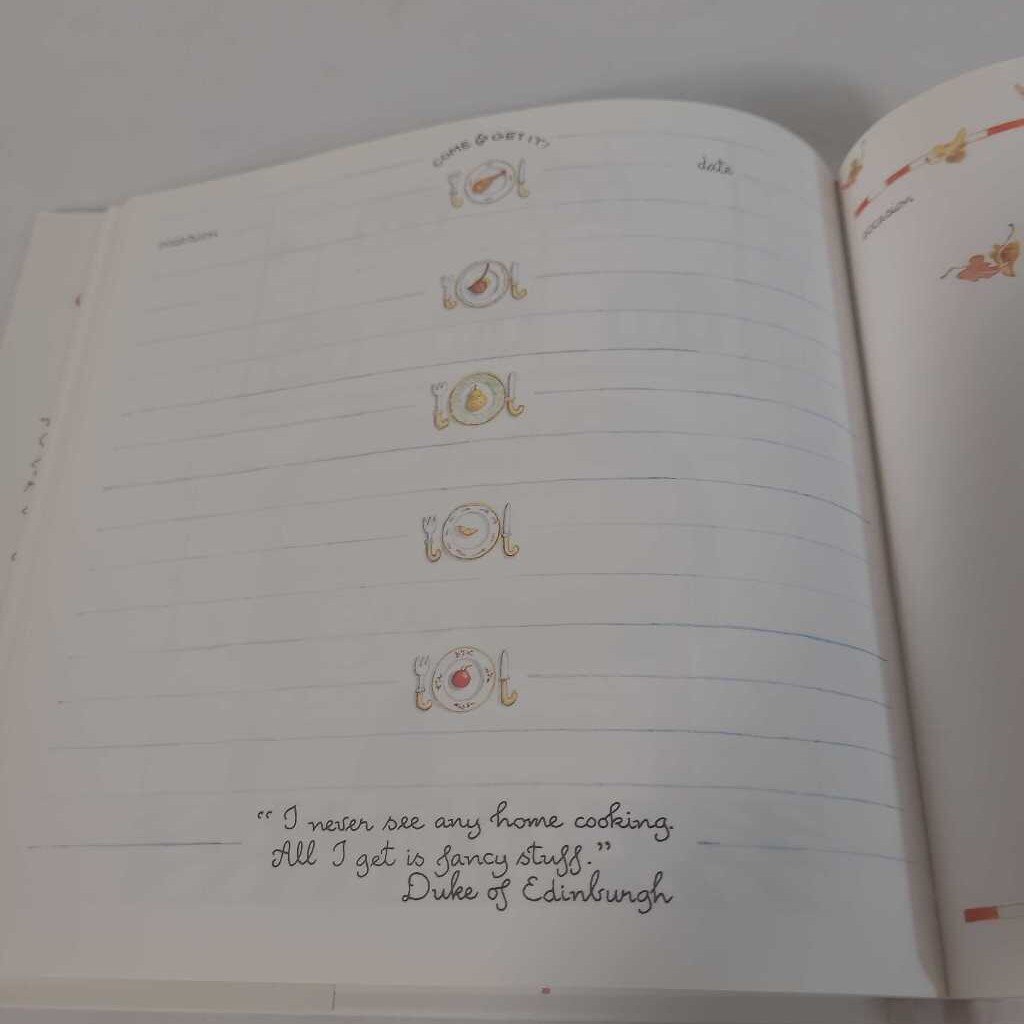 COME & GET IT!
date
occasion
occasion
“ I never see any home cooking.
All I get is fancy stuff.”
Duke of Edinburgh